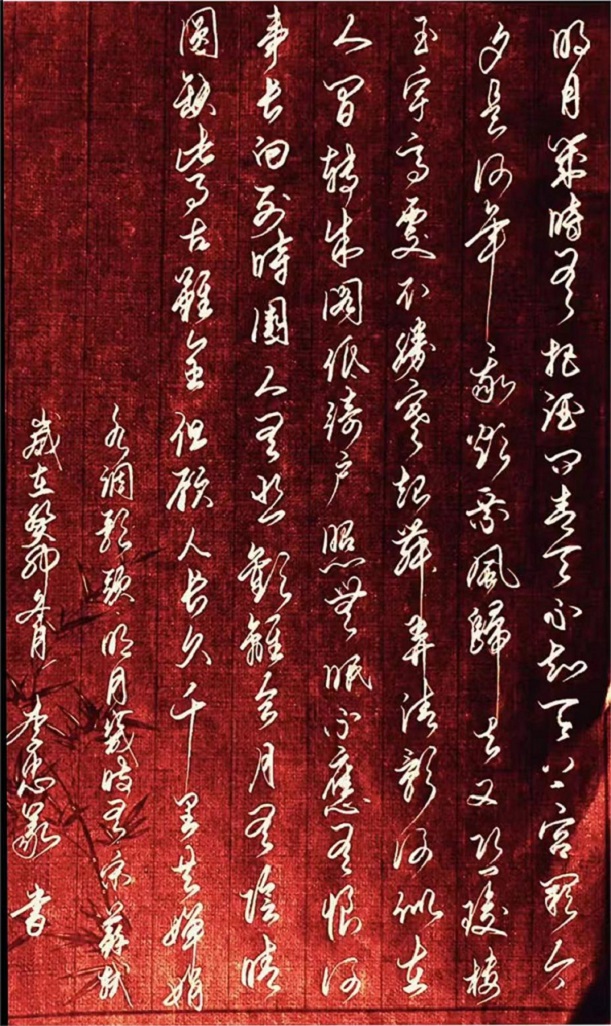 明月幾時有把酒问青天不知天上宫闕今
夕是何年我欲乘風歸去又恐瓊樓
玉宇高處不勝寒起舞弄清影何似在
人間轉朱閣低綺户照無眠不應有恨何
事長向别時圓人有悲歡離合月有陰晴
圓缺此事古難全但願人長久千里共嬋娟
水調歌頭·明月幾時有宋蘇軾
歲在癸卯冬月李忠書